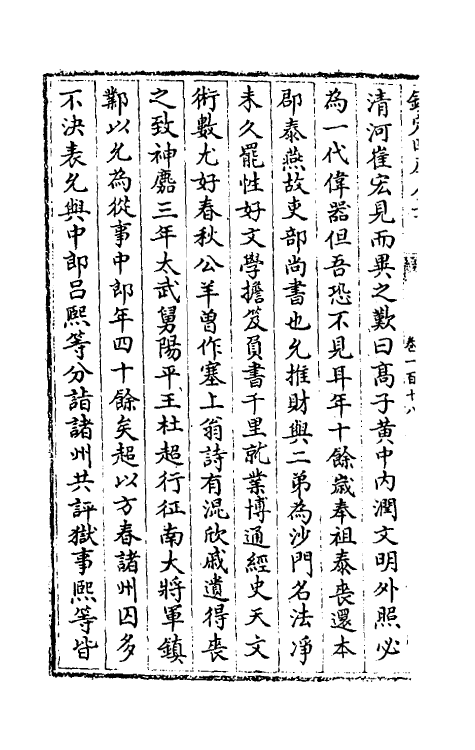 清河崔宏見而異之歎曰髙子黄中内潤文明外照必
為一代偉器但吾恐不見耳年十餘歲奉祖泰喪還本
郡泰燕故吏部尚書也允推財與二弟為沙門名法凈
未久罷性好文學擔笈負書千里就業博通經史天文
術數尤好春秋公羊曽作塞上翁詩有混欣戚遺得喪
之致神䴥三年太武舅陽平王杜超行征南大將軍鎮
鄴以允為從事中郎年四十餘矣超以方春諸州囚多
不決表允與中郎吕熙等分詣諸州共評獄事熙等皆
卷一百十八